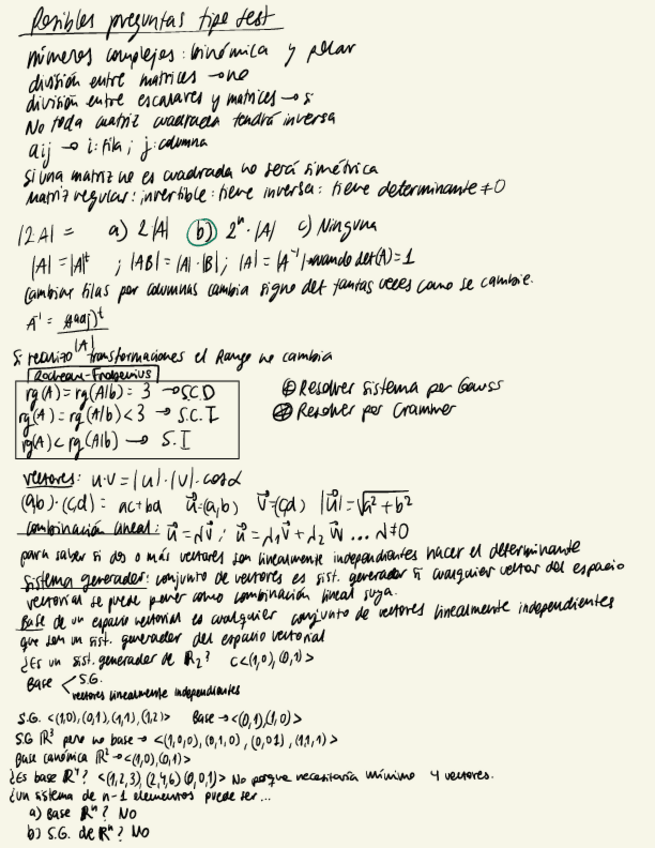 Posibles preguntas tipo test
números complejos: binómica y polar
división entre matrices → no
división entre escalares y matrices → sí
No toda matriz cuadrada tendrá inversa
aij → i: fila; j: columna
Si una matriz no es cuadrada no será simétrica
Matriz regular: invertible: tiene inversa: tiene determinante ≠ 0
|2·A| = a) 2|A| b) 2ⁿ·|A| c) Ninguna
|A| = |A|ᵗ ; |AB| = |A|·|B| ; |A| = |A⁻¹| → cuando det(A) = 1
Cambiar filas por columnas cambia signo det tantas veces como se cambie.
A⁻¹ = (Aadj)ᵗ
|A|
Si realizo transformaciones el Rango no cambia
Rocheau-Frobenius
rg(A) = rg(A/b) = 3 → S.C.D
rg(A) = rg(A/b) < 3 → S.C.I
rg(A) < rg(A/b) → S.I
⊕ Resolver sistema por Gauss
⊕ Resolver por Crammer
vectores: u·v = |u|·|v|·cosα
(a,b)·(c,d) = ac+bd u⃗=(a,b) v⃗=(c,d) |u⃗| = √a²+b²
combinación lineal: u⃗ = λv⃗ ; u⃗ = λ₁v⃗ + λ₂w⃗ ... λ≠0
para saber si dos o más vectores son linealmente independientes hacer el determinante
Sistema generador: conjunto de vectores es sist. generador si cualquier vector del espacio
vectorial se puede poner como combinación lineal suya.
Base de un espacio vectorial es cualquier conjunto de vectores linealmente independientes
que son un sist. generador del espacio vectorial
¿Es un sist. generador de R₂? C<(1,0),(0,1)>
Base < S.G.
vectores linealmente independientes
S.G. <(1,0),(0,1),(1,1),(1,2)> Base → <(0,1),(1,0)>
S.G R³ pero no base → <(1,0,0),(0,1,0),(0,0,1),(1,1,1)>
Base canónica R² → <(1,0),(0,1)>
¿Es base R⁴? <(1,2,3),(2,4,6)(0,0,1)> No porque necesitaría mínimo 4 vectores.
¿Un sistema de n-1 elementos puede ser...
a) Base Rⁿ? No
b) S.G. de Rⁿ? No